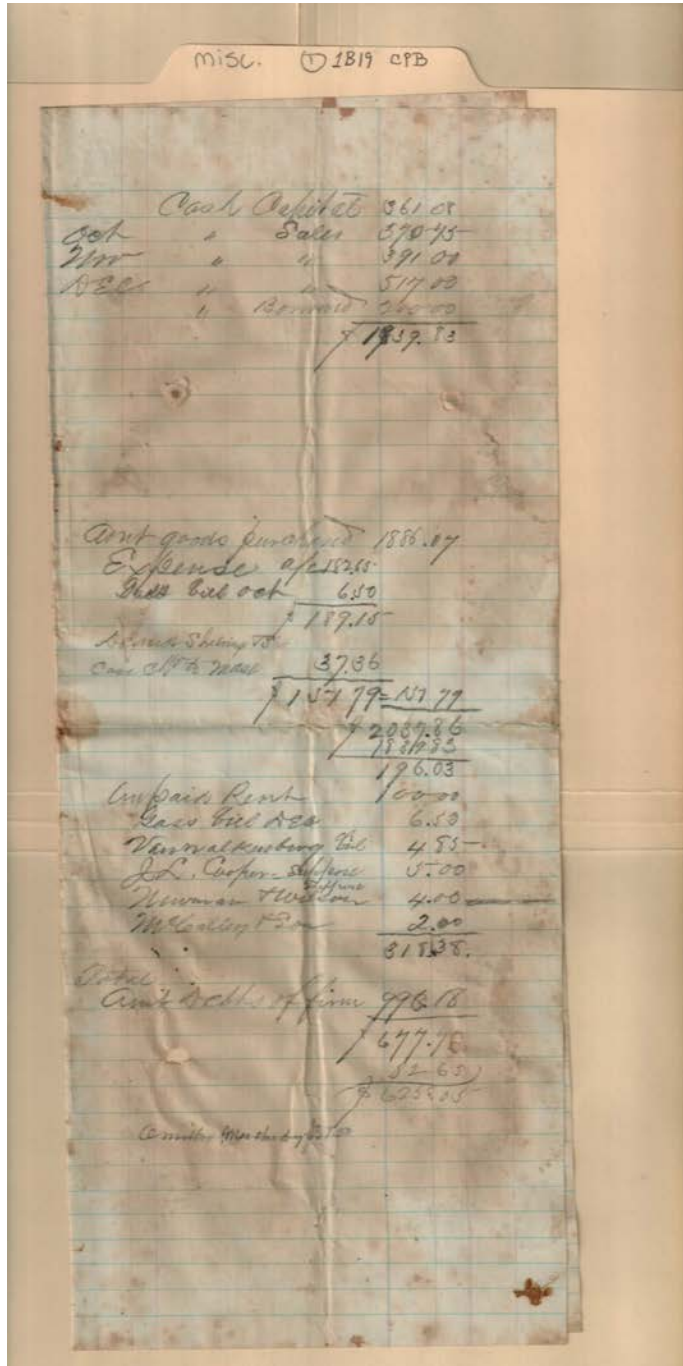 misc. ① 1B19 CPB
Cash Capital 361.08
Oct " Sales 370.75
Nov " " 391.00
DEC " " 517.00
" Borrowed 200.00
$ 1839.83
Amt goods purchased 1886.07
Expense a/c 182.65
Gass bill oct 6.50
$ 189.15
37.36
$ 151 79 = 151 79
$ 2037.86
1839.83
196.03
Unpaid Rent 100 00
Gass bill DEC 6.50
Vanvalkenburg Bil 4.85
J.L. Cooper - Suppose 5.00
Newman & Wilson Suppose 4.00
McCalley & Son 2.00
318.38.
Total
Amt Debts of firm 996.18
$ 677.70
52.65
$ 625.05